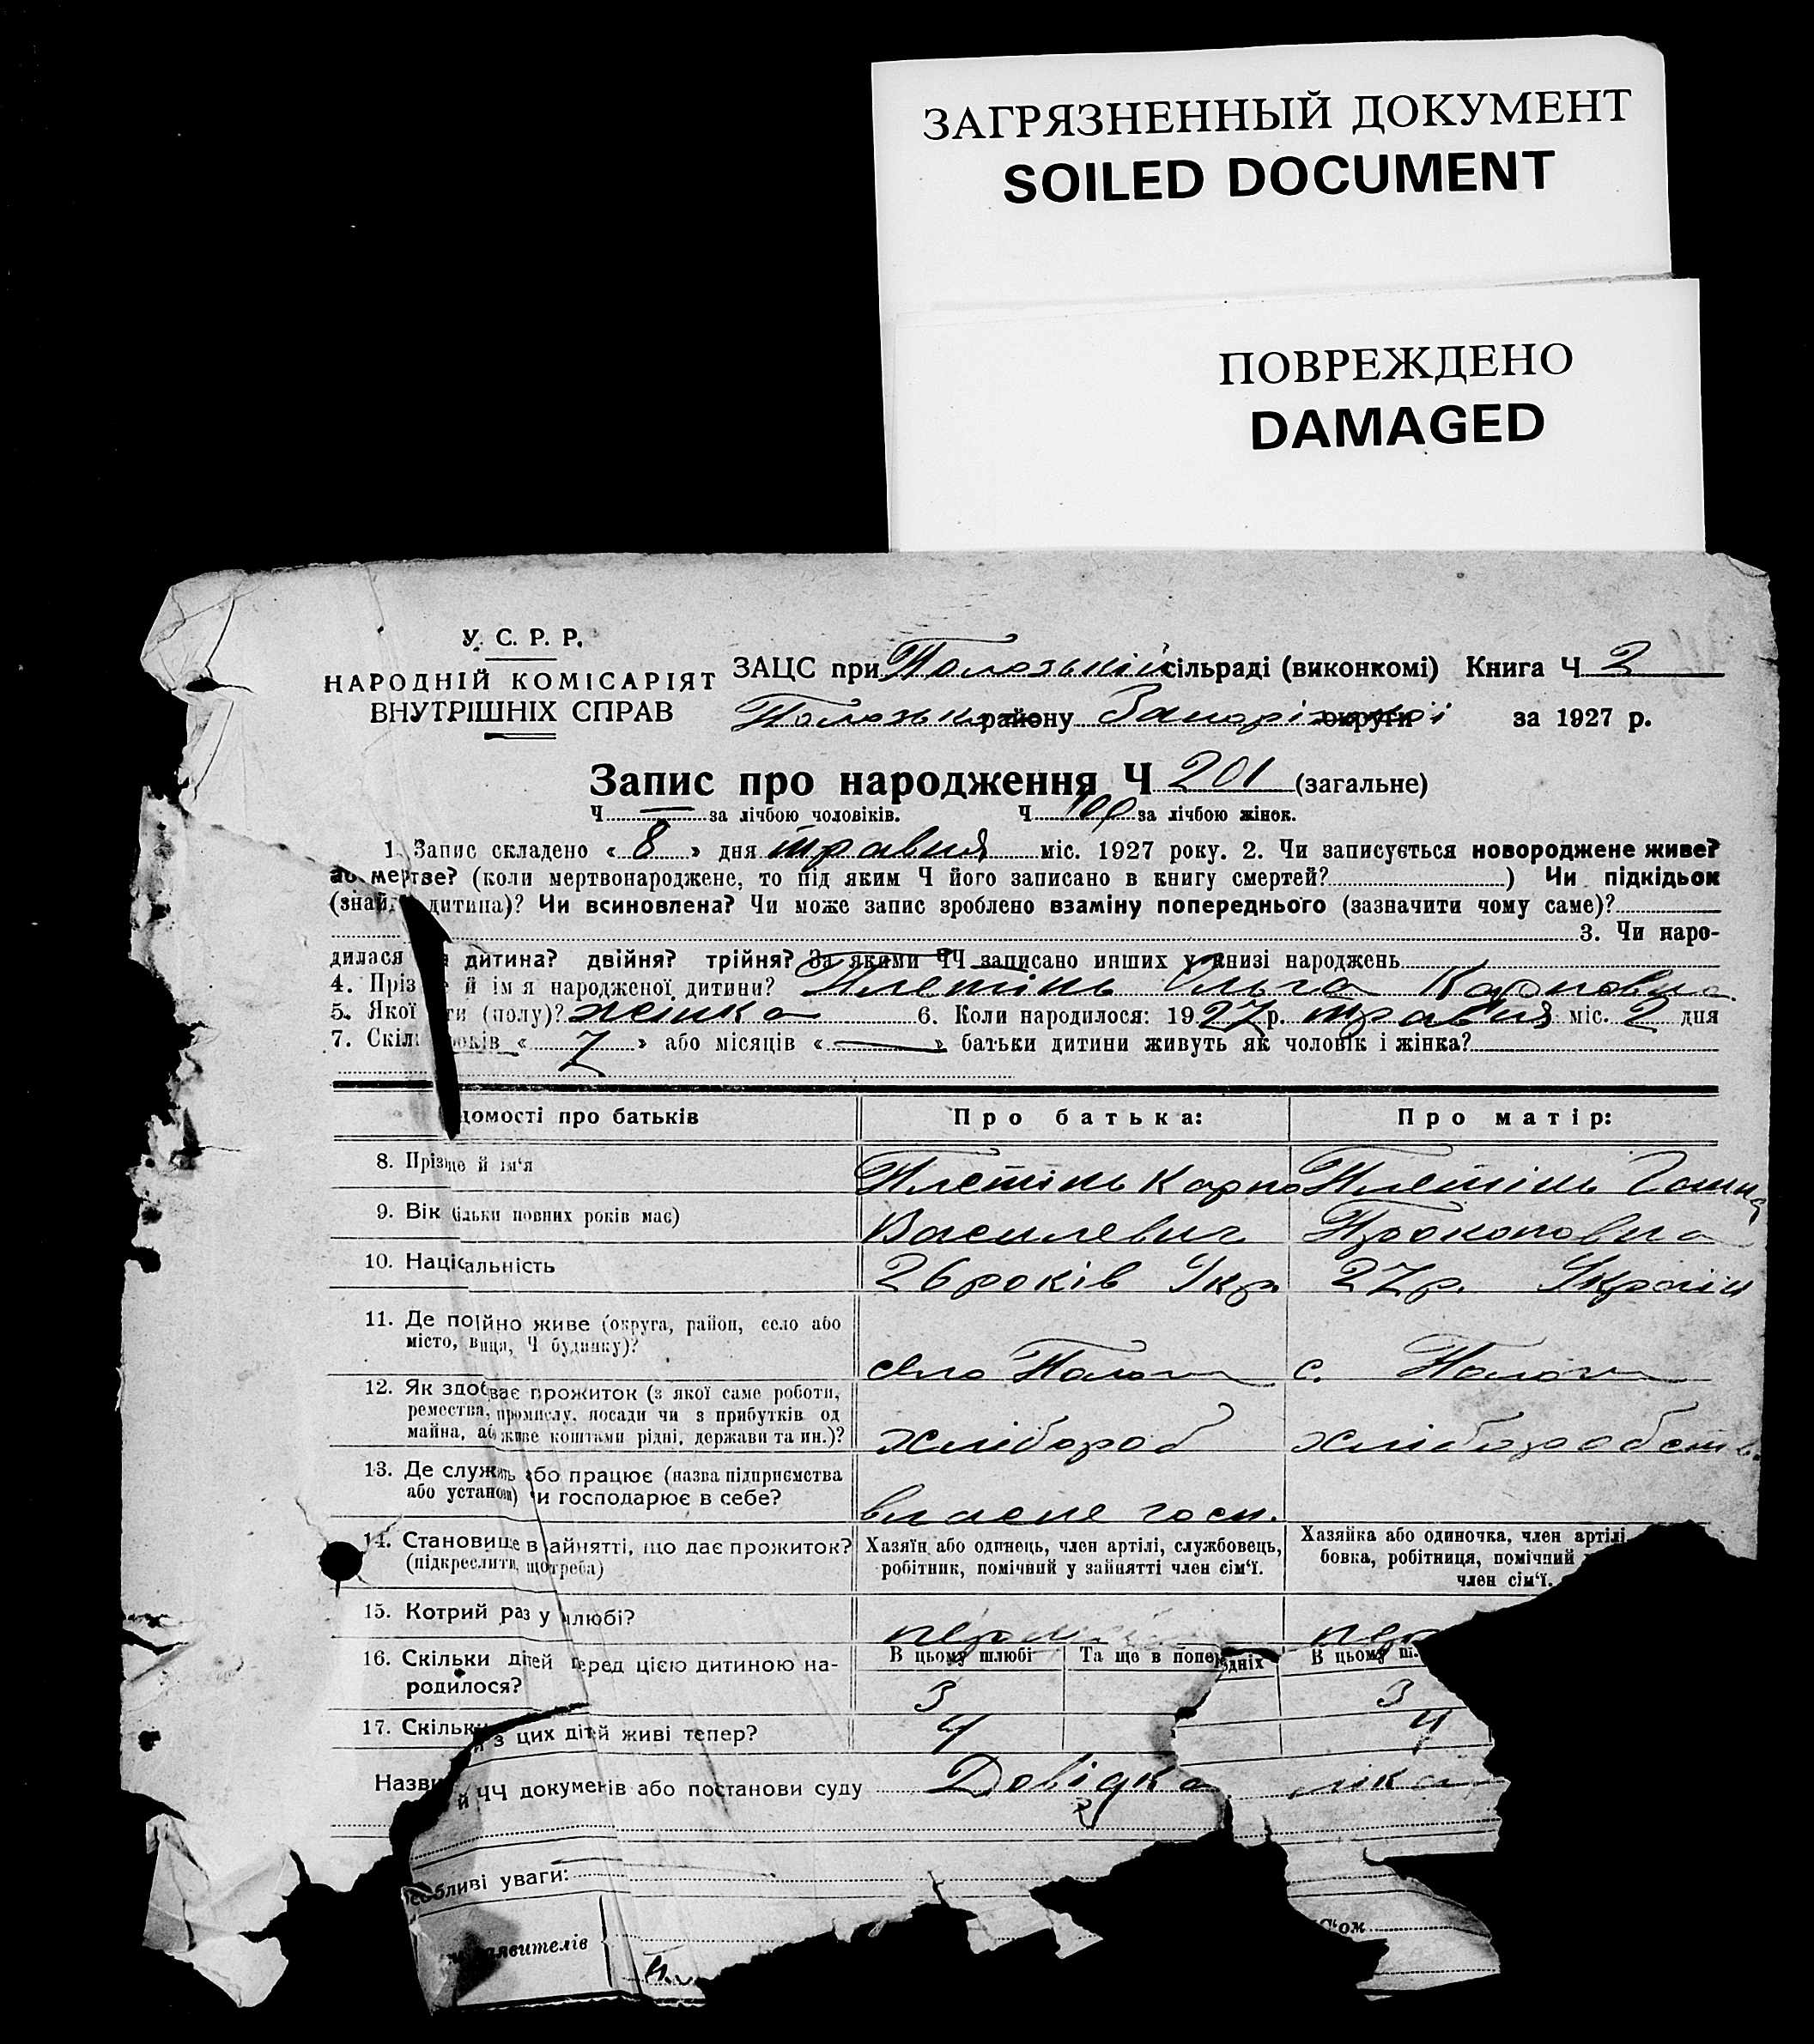 ЗАГРЯЗНЕННЫЙ ДОКУМЕНТ
SOILED DOCUMENT
ПОВРЕЖДЕНО
DAMAGED
У. С. Р. Р.
НАРОДНІЙ КОМІСАРІЯТ
ВНУТРІШНІХ СПРАВ
ЗАЦС при Пологській сільраді (виконкомі) Книга Ч 2
району Запоріжжі округи за 1927 р.
Запис про народження Ч 201 (загальне)
Ч — за лічбою чоловіків. Ч 100 за лічбою жінок.
1. Запис складено « 8 » дня травня міс. 1927 року. 2. Чи записується новороджене живе?
або мертве? (коли мертвонароджене, то під яким Ч його записано в книгу смертей? ) Чи підкідьок
(знайд дитина)? Чи всиновлена? Чи може запис зроблено взаміну попереднього (зазначити чому саме)?
3. Чи наро-
дилася а дитина? двійня? трійня? За якими ЧЧ записано инших у книзі народжень
4. Пріз е й ім я народженої дитини? Плетінь Ольга Карповна
5. Якої ти (полу)? жінка 6. Коли народилося: 1927 р. травня міс. 2 дня
7. Скіл років « 7 » або місяців « — » батьки дитини живуть як чоловік і жінка?
домості про батьків Про батька: Про матір:
8. Прізще й ім'я Плетінь Карпо Плетінь Ганна
9. Вік ільки повних років має) Василевич Прокоповна
10. Націєальність 26 років Укр. 27 р. Україн
11. Де поїйно живе (округа, район, село або
місто, вица, Ч будинку)? село Пологи с. Пологи
12. Як здобває прожиток (з якої саме роботи,
ремества, промислу, посади чи з прибутків од
майна, аб живе коштами рідні, держави та ин.)? хлібороб хліборобств
13. Де служить або працює (назва підприємства
або установи) чи господарює в себе? власне госп.
14. Становище в айнятті, що дає прожиток? Хазяїн або одинець, член артілі, службовець, Хазяйка або одиночка, член артілі
(підкреслити, що треба) робітник, помічний у зайнятті член сім'ї. бовка, робітниця, помічний
член сім'ї.
15. Котрий раз у шлюбі? пер
16. Скільки дітей перед цією дитиною на- В цьому шлюбі Та ще в попередніх В цьому ш
родилося? 3 3
17. Скільки з цих дітей живі тепер? 4 4
Назви й ЧЧ документів або постанови суду Довідка
особливі уваги:
аявителів